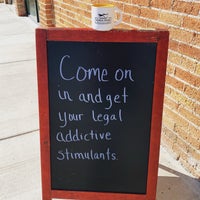 Come on
in and get
your legal
addictive
stimulants.